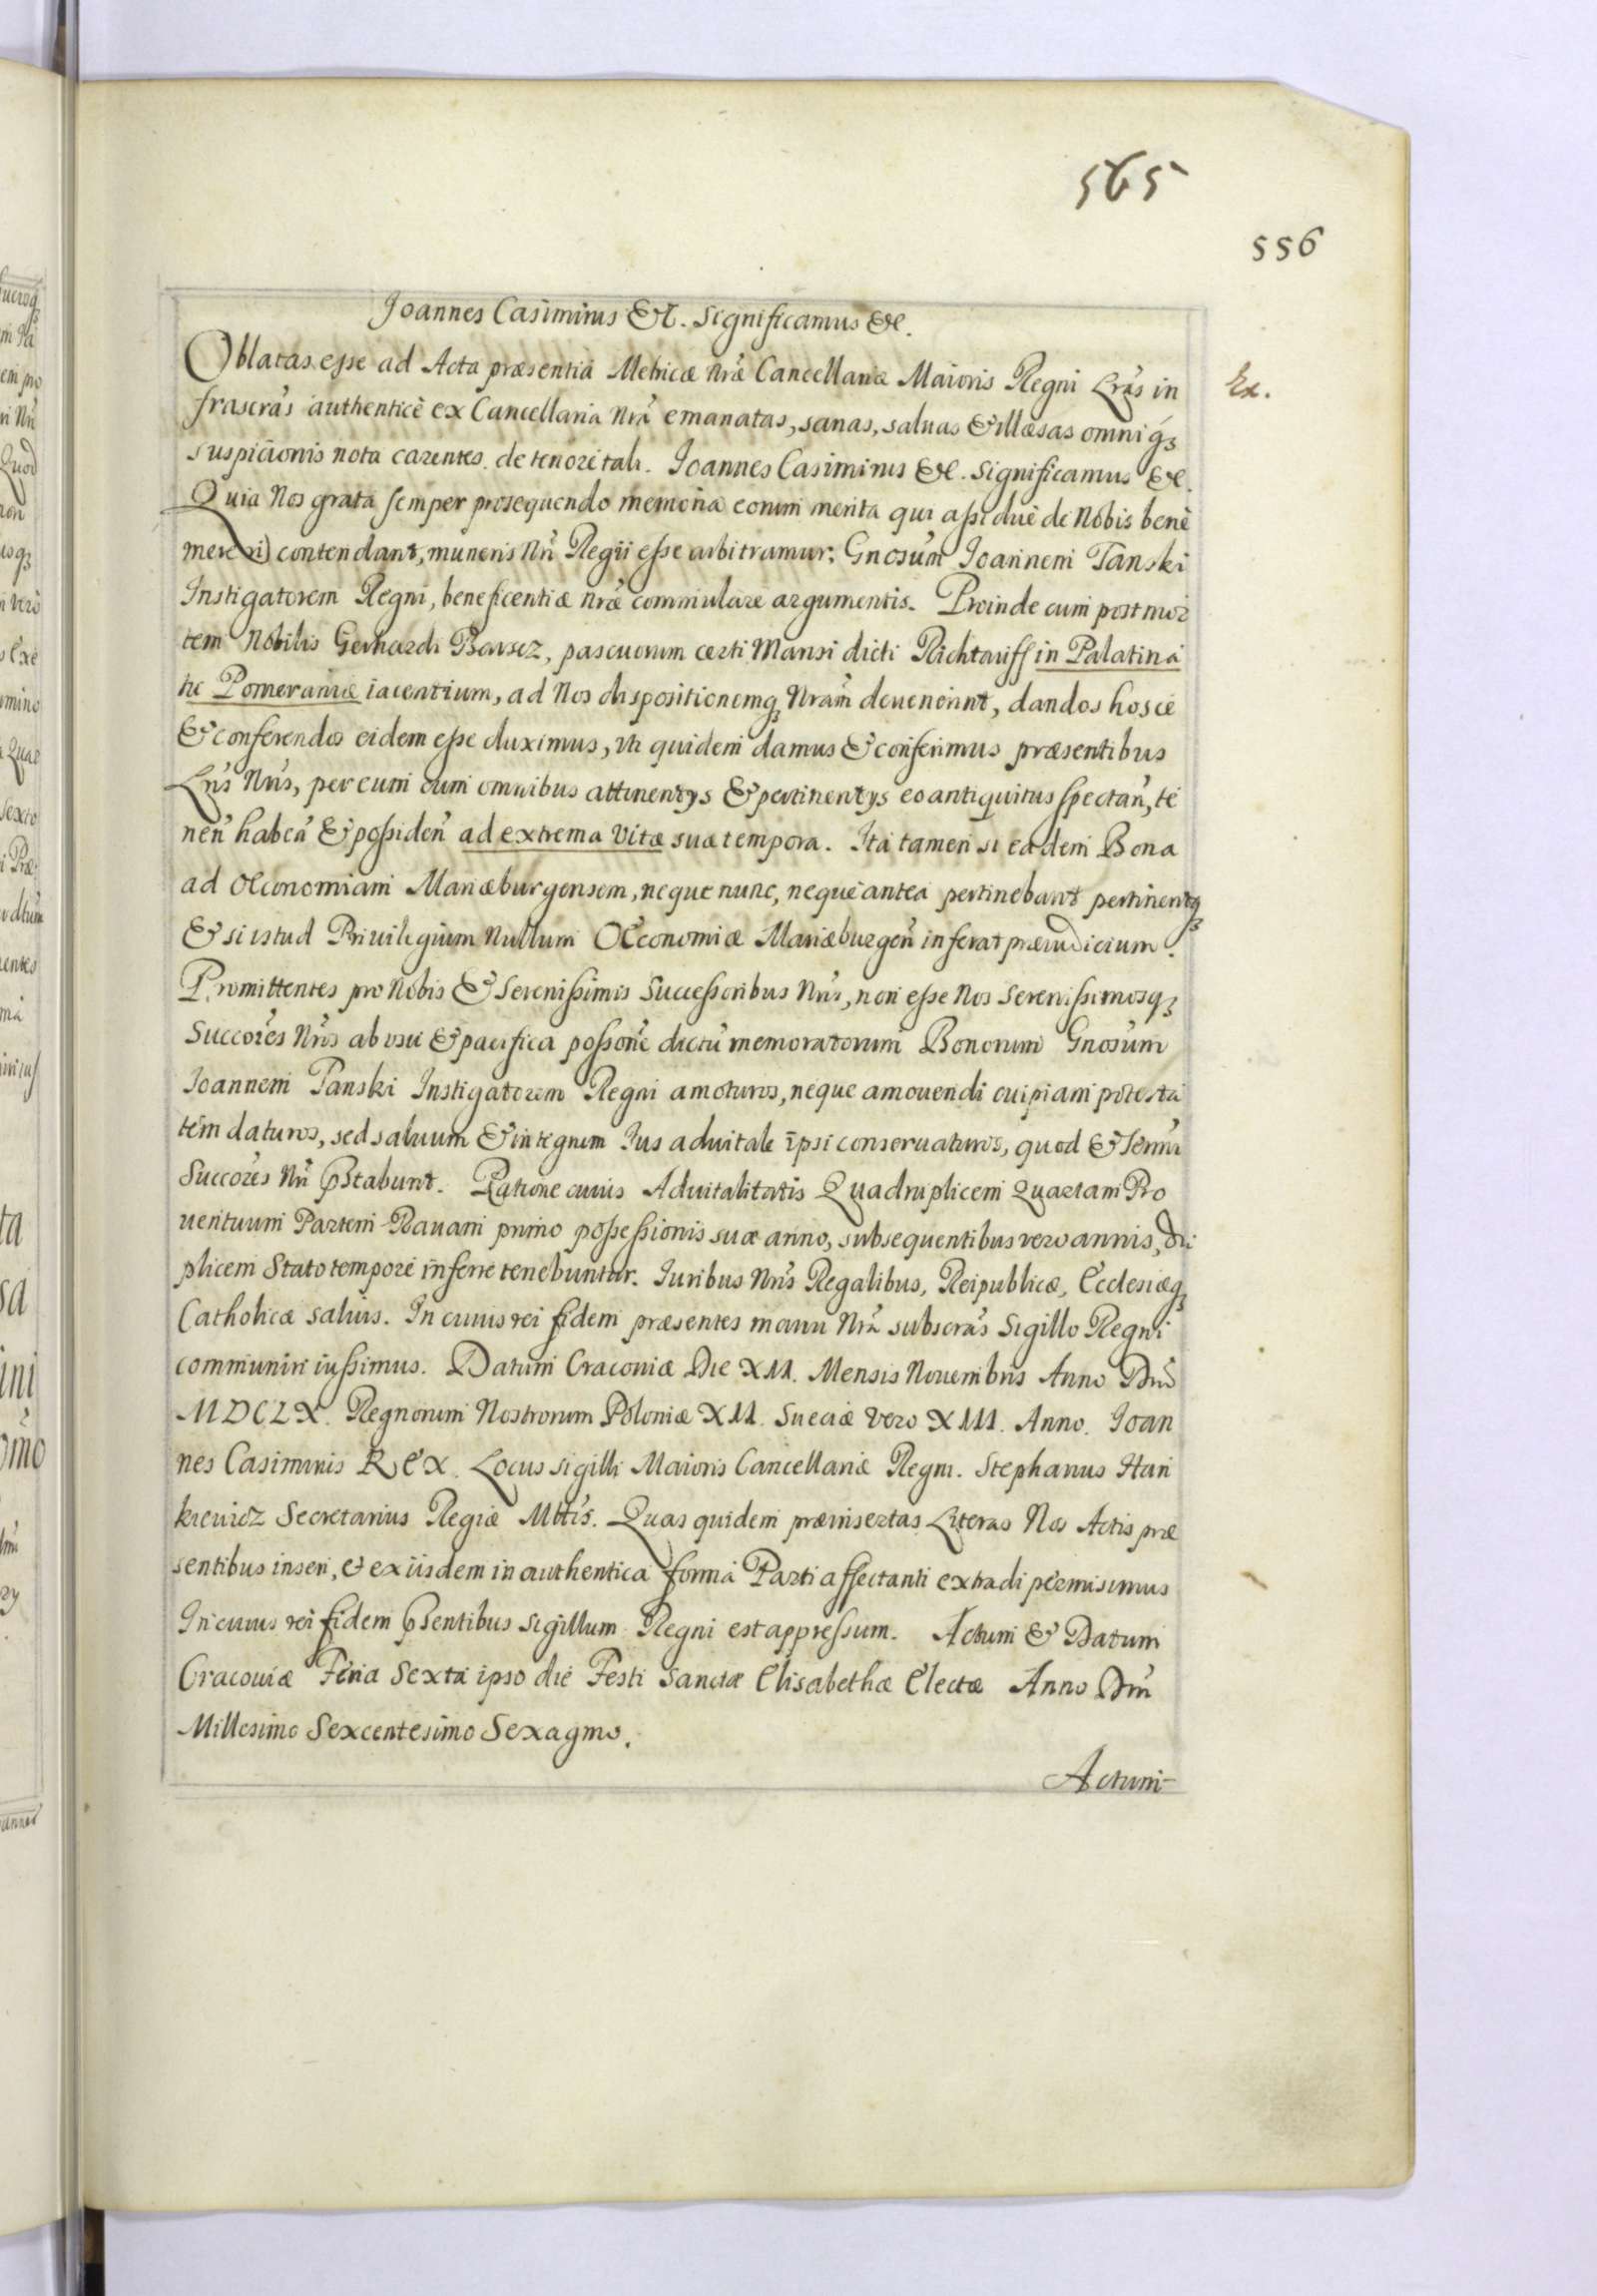 565
556
Joannes Casimirus &c. Significamus &c.
Oblatas esse ad Acta præsentia Metricæ Nræ Cancellariæ Maioris Regni Lrãs in
Ex.
frascrãs authenticè ex Cancellaria Nrã emanatas, sanas, saluas & illæsas omniq́ꝫ
suspicionis nota carentes. de tenore tali. Joannes Casimirus &c. Significamus &c.
Quia Nos grata semper prosequendo memoria eorum merita qui assiduè de Nobis benè
mereri contendant, muneris Nri Regii esse arbitramur: Gnosum Joannem Tanski
Instigatorem Regni, beneficentiæ Nræ commulare argumentis. Proinde cum post mor
tem Nobilis Gerhardi Barsez, pascuorum certi Mansi dicti Richtauff in Palatina
tu Pomeraniæ iacentium, ad Nos dispositionemqꝫ Nram deuenerint, dandos hosce
& conferendos eidem esse duximus, vti quidem damus & conferimus præsentibus
Lris Nris, per eum cum omnibus attinentys & pertinentys eo antiquitus spectan, te
nen haben & possiden ad extrema vitæ suæ tempora. Ita tamen si eadem Bona
ad Œconomiam Mariæburgensem, neque nunc, neque antea pertinebant pertinentqꝫ
& si istud Priuilegium Nullum Œconomiæ Mariæburgen inferat præiudicium.
Promittentes pro Nobis & Serenissimis Successoribus Nris, non esse Nos Serenissimosqꝫ
Succores Nros ab vsu & pacifica possone dictu memoratorum Bonorum Gnosum
Joannem Tanski Instigatorem Regni amoturos, neque amouendi cuipiam potesta
tem daturos, sed saluum & integrum Ius aduitale ipsi conseruaturos, quod & Sermi
Succores Nri pstabunt. Ratione cuius Aduitalitatis Quadruplicem Quartam Pro
uentuum Partem Rauam primo possessionis suæ anno, subsequentibus vero annis, du
plicem Stato tempore inferre tenebuntur. Iuribus Nris Regalibus, Reipublicæ, Ecclesiæqꝫ
Catholicæ saluis. In cuius rei fidem præsentes manu Nrã subscrãs Sigillo Regni
communiri iussimus. Datum Cracouiæ Die XII. Mensis Nouembris Anno Dni
MDCLX. Regnorum Nostrorum Poloniæ XII. Sueciæ vero XIII. Anno. Joan
nes Casimirus REX. Locus sigilli Maioris Cancellariæ Regni. Stephanus Han
kiewicz Secretarius Regiæ Mttis. Quas quidem præinsertas Literas Nos Actis præ
sentibus inseri, & ex iisdem in authentica forma Parti affectanti extradi permisimus
In cuius rei fidem psentibus sigillum Regni est appressum. Actum & Datum
Cracouiæ Feria Sexta ipso die Festi Sanctæ Elisabethæ Electæ Anno Dni
Millesimo Sexcentesimo Sexagmo.
Actum